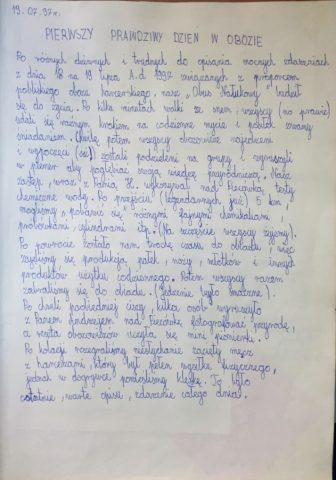 19.07.97r.
PIERWSZY PRAWDZIWY DZIEŃ W OBOZIE
Po różnych dziwnych i trudnych do opisania nocnych zdarzeniach
z dnia 18 na 19 lipca A.d. 1997 związanych z proporcem
pobliskiego obozu harcerskiego, nasz "Obóz Naukowy" budził
się do życia. Po kilku minutach walki ze snem, wszyscy (no prawie)
udali się raźnym krokiem na codzienne mycie i posiłek zwany
śniadaniem. Chwilę potem wszyscy obozowicze najedzeni
i wypoczęci (sic!) zostali podzieleni na grupy i wyruszyli
w plener aby pogłębiać swoją wiedzę przyrodniczą. Nasz
zastęp, wraz z Panią H. wykonywał nad testy
chemiczne wody. Po przejściu (legendarnych już) 5 km
mogliśmy pobawić się różnymi fajnymi chemikaliami,
probówkami, cylindrami itp. (Na szczęście wszyscy żyjemy).
Po powrocie zostało nam trochę czasu do obiadu, więc
zajęliśmy się produkcją pałek, noży, młotków i innych
produktów użytku codziennego. Potem wszyscy razem
zabraliśmy się do obiadu. (Jedzenie było smaczne).
Po chwili poobiedniej ciszy, kilka osób wyruszyło
z Panem Andrzejem nad fotografować przyrodę,
a reszta obozowiczów uczyła się mini piosenki.
Po kolacji rozegraliśmy niesłychanie zacięty mecz
z harcerzami, który był pełen wysiłku fizycznego,
jednak w dogrywce ponieśliśmy klęskę. To było
ostatnie, warte opisu, zdarzenie całego dnia.